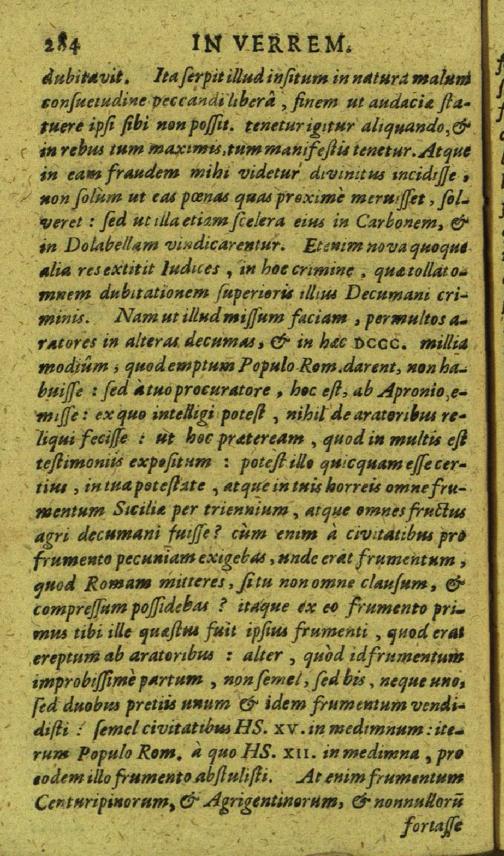 284 IN VERREM.
dubitavit. Ita serpit illud insitum in natura malum
consuetudine peccandi liberâ, finem ut audaciæ sta-
tuere ipsi sibi non possit. tenetur igitur aliquando, &
in rebus tum maximis, tum manifestis tenetur. Atque
in eam fraudem mihi videtur divinitus incidisse,
non solùm ut eas pœnas quas proximè meruisset, sol-
veret: sed ut illa etiam scelera eius in Carbonem, &
in Dolabellam vindicarentur. Etenim nova quoque
alia res extitit Iudices, in hoc crimine, quæ tollat o-
mnem dubitationem superioris illius Decumani cri-
minis. Nam ut illud missum faciam, permultos a-
ratores in alteras decumas, & in hæc DCCC. millia
modiûm, quod emptum Populo Rom. darent, non ha-
buisse: sed à tuo procuratore, hoc est, ab Apronio, e-
misse: ex quo intelligi potest, nihil de aratoribus re-
liqui fecisse: ut hoc præteream, quod in multis est
testimoniis expositum: potest illo quicquam esse cer-
tius, in tua potestate, atque in tuis horreis omne fru-
mentum Siciliæ per triennium, atque omnes fructus
agri decumani fuisse? cùm enim à civitatibus pro
frumento pecuniam exigebas, unde erat frumentum,
quod Romam mitteres, si tu non omne clausum, &
compressum possidebas? itaque ex eo frumento pri-
mus tibi ille quæstus fuit ipsius frumenti, quod erat
ereptum ab aratoribus: alter, quòd id frumentum
improbissimè partum, non semel, sed bis, neque uno,
sed duobus pretiis unum & idem frumentum vendi-
disti: semel civitatibus HS. XV. in medimnum: ite-
rum Populo Rom. à quo HS. XII. in medimna, pro
eodem illo frumento abstulisti. At enim frumentum
Centuripinorum, & Agrigentinorum, & nonnullorũ
fortasse